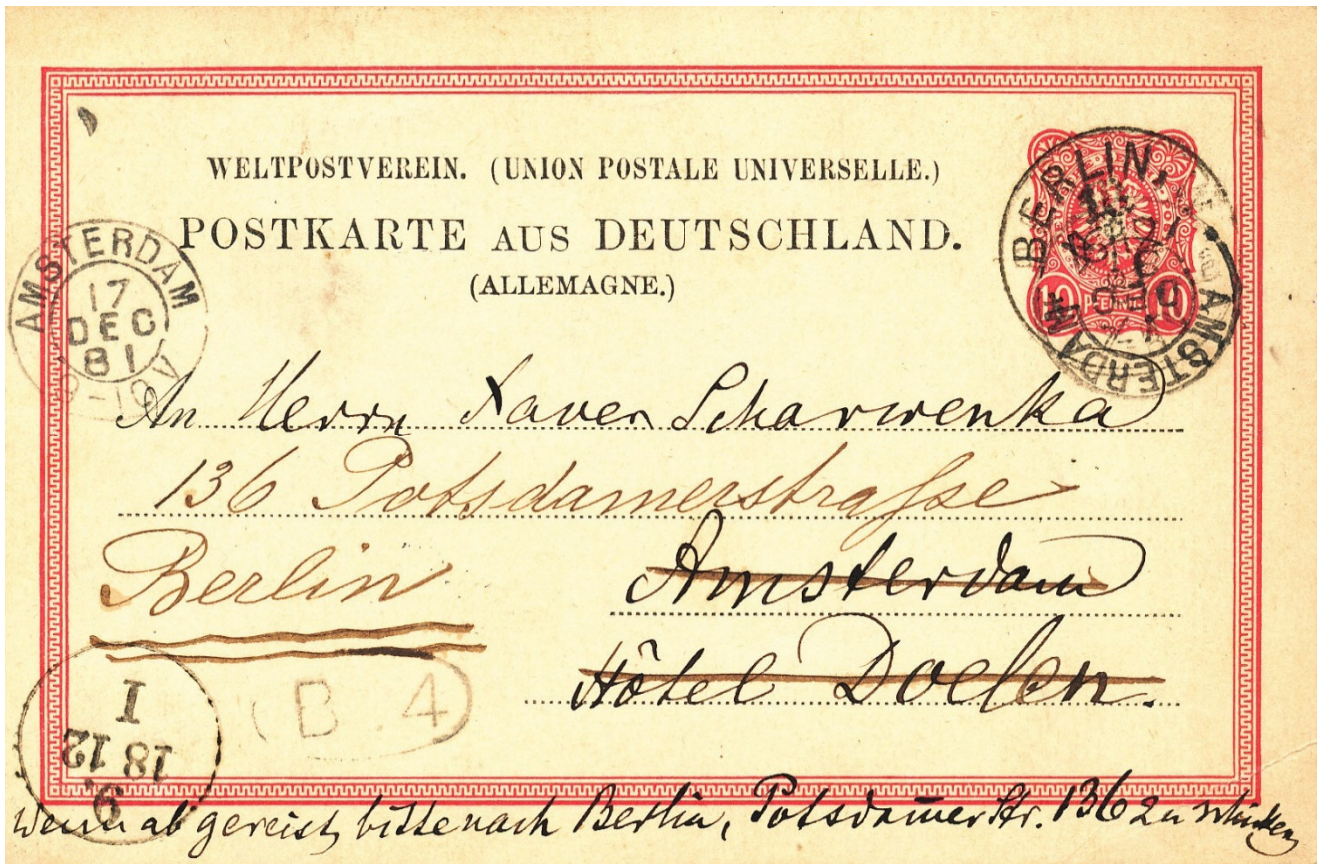 WELTPOSTVEREIN. (UNION POSTALE UNIVERSELLE.)
POSTKARTE AUS DEUTSCHLAND.
(ALLEMAGNE.)
BERLIN,
10 PFENNIG 10
AMSTERDAM
AMSTERDAM
17
DEC
81
An Herrn Xaver Scharwenka
136 Potsdamerstraſse
Berlin
Amsterdam
Hôtel Doelen.
I
18 12
9.
(B. 4)
Wenn abgereist, bitte nach Berlin, Potsdamer Str. 136 zu schicken